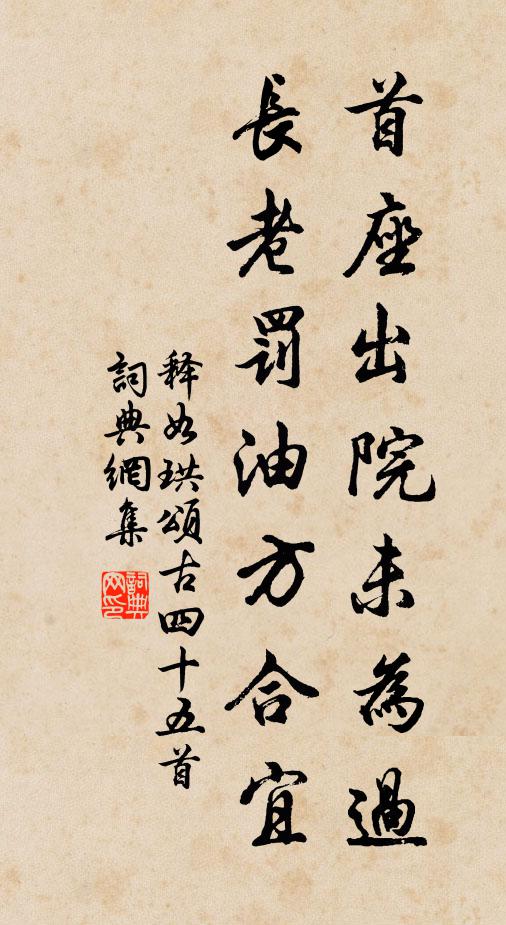 首座出院未為過
長老罰油方合宜
释如珙頌古四十五首
詞典網集
詞典网印